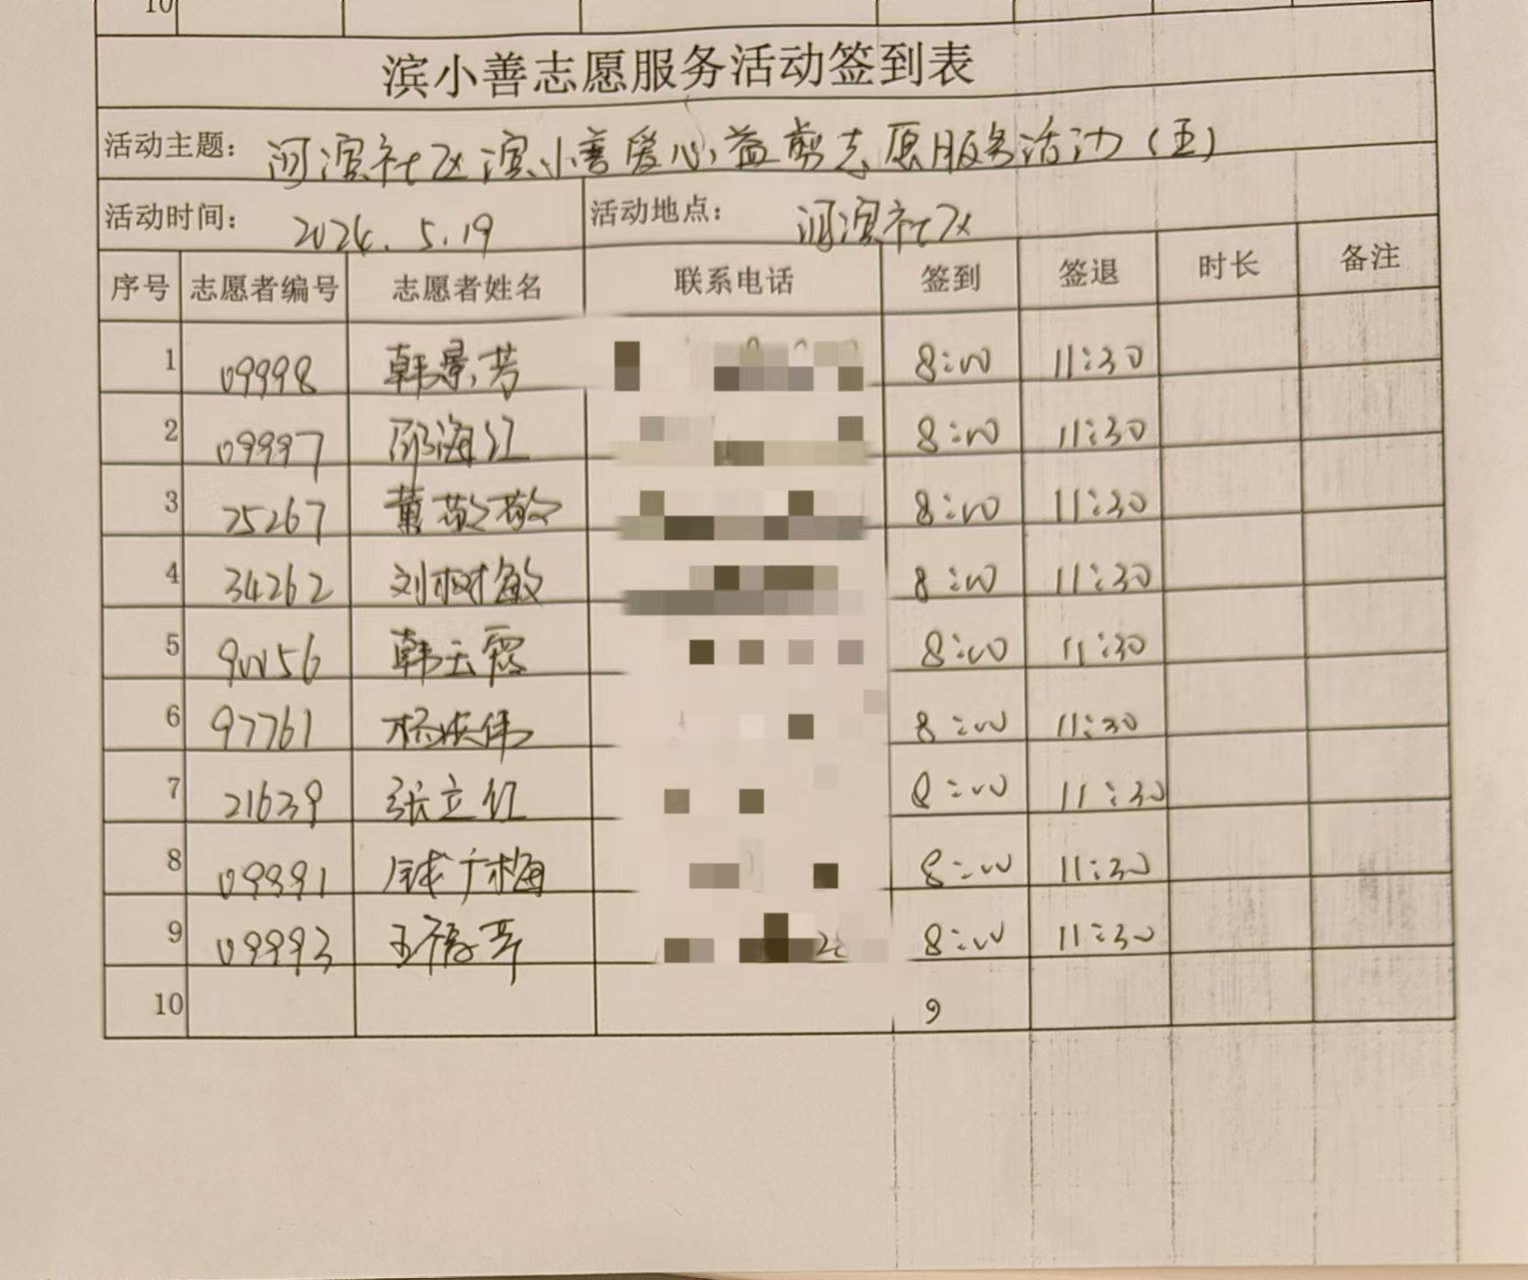 10
滨小善志愿服务活动签到表
活动主题: 河滨社区滨小善爱心益剪志愿服务活动(五)
活动时间: 2024.5.19 活动地点: 河滨社区
序号 志愿者编号 志愿者姓名 联系电话 签到 签退 时长 备注
1 09998 韩景芳 8:00 11:30
2 09997 邵海红 8:00 11:30
3 25267 董敬敬 8:00 11:30
4 34262 刘树敏 8:00 11:30
5 90056 韩云霞 8:00 11:30
6 97761 杨洪伟 8:00 11:30
7 21639 张立红 8:00 11:30
8 09991 钱广梅 8:00 11:30
9 09993 王福 8:00 11:30
10 9